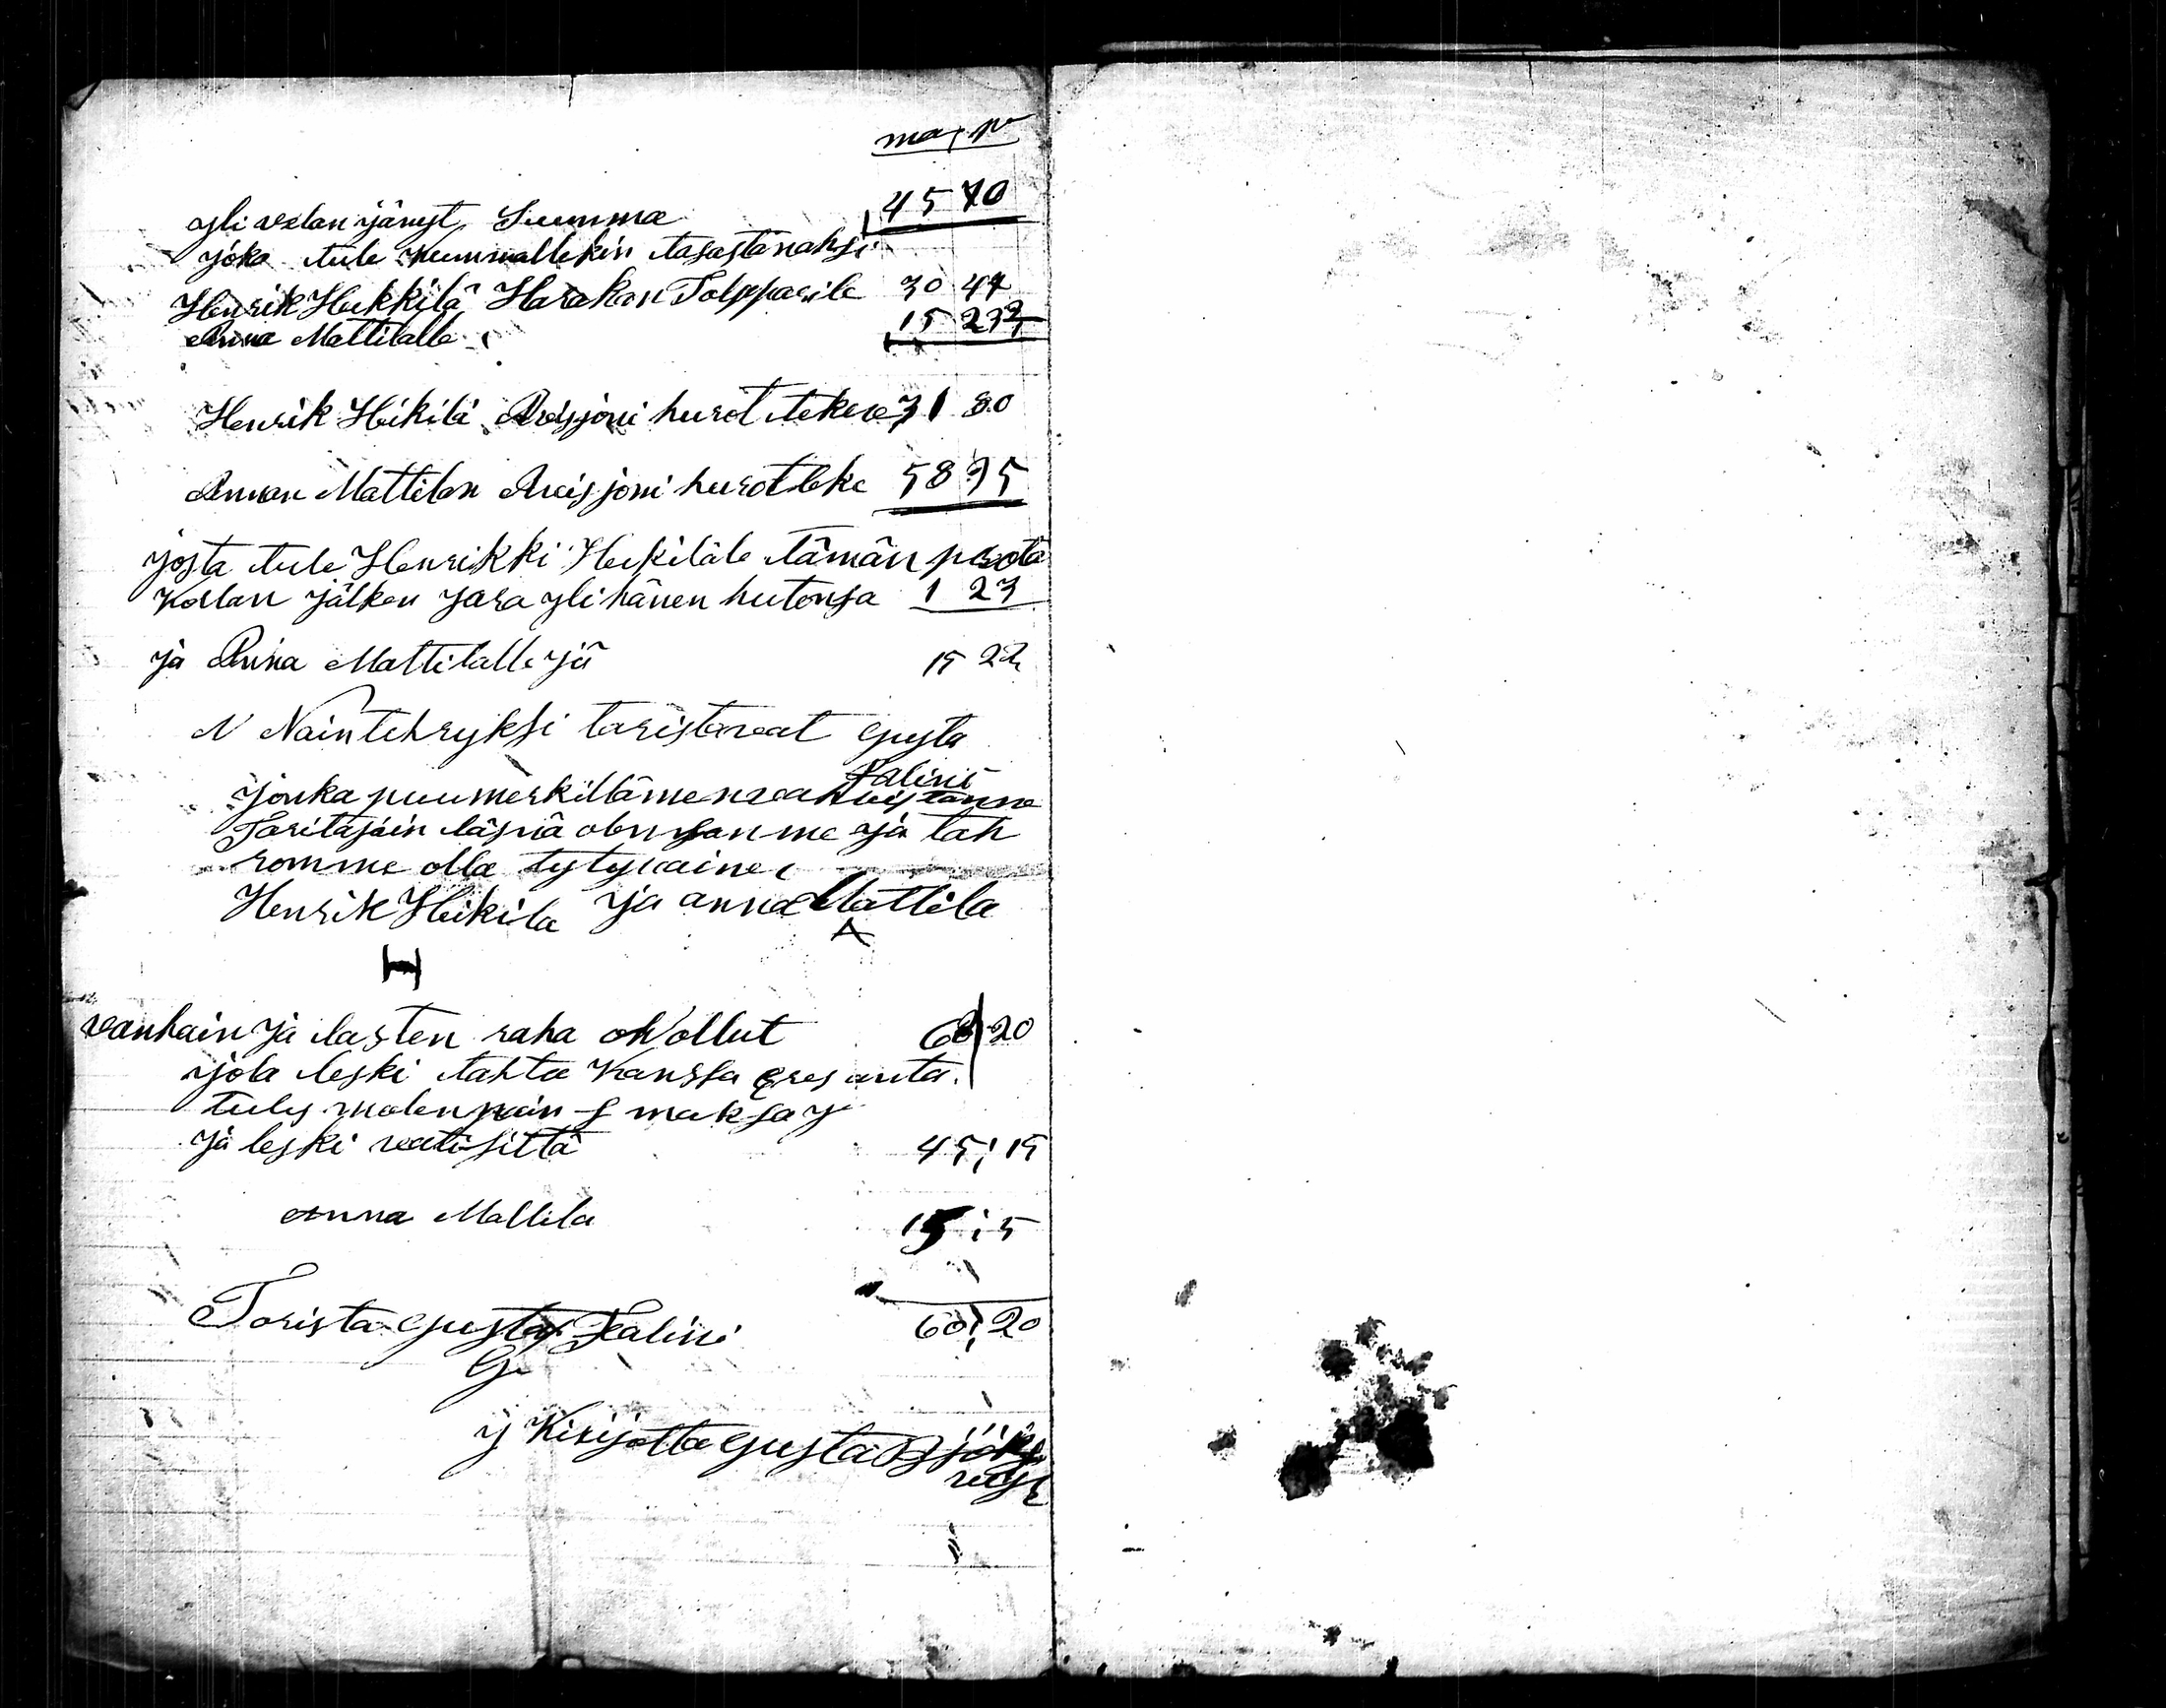 ma p
yli velan jänyt Summa 45 70
joka tule kummallekin tasastanahsi
Henrik Heikkilä Harakan Tolppaeile 30 47
Anna Mattilalle 15 23
Henrik Heikilä Aveisjoni hurot tekeve 31 80
Annan Mattilan Aveisjoni hurot teke 58 35
josta tule Henrikki Heikiläle tämän
Koelan jälken jara yli hänen hutonsa 1 23
ja Anna Mattilalle jä 15 22
N Naintehryksi taristavat Gusta
Palini
jonka puumerkillämene vahvistamme
Taritajain läsnä olnsanme ja tah
romme olla tytyvaine
Henrik Heikila ja anna Mattila
H
vanhain ja lasten raha oli ollut 68 20
jola leski tahta Kanssa eres anta
tuly molenpain maksa
ja leski 45,15
anna Mattila 15,5
Torista Gusta Palini 60,20
G
j Kirijotta Gusta